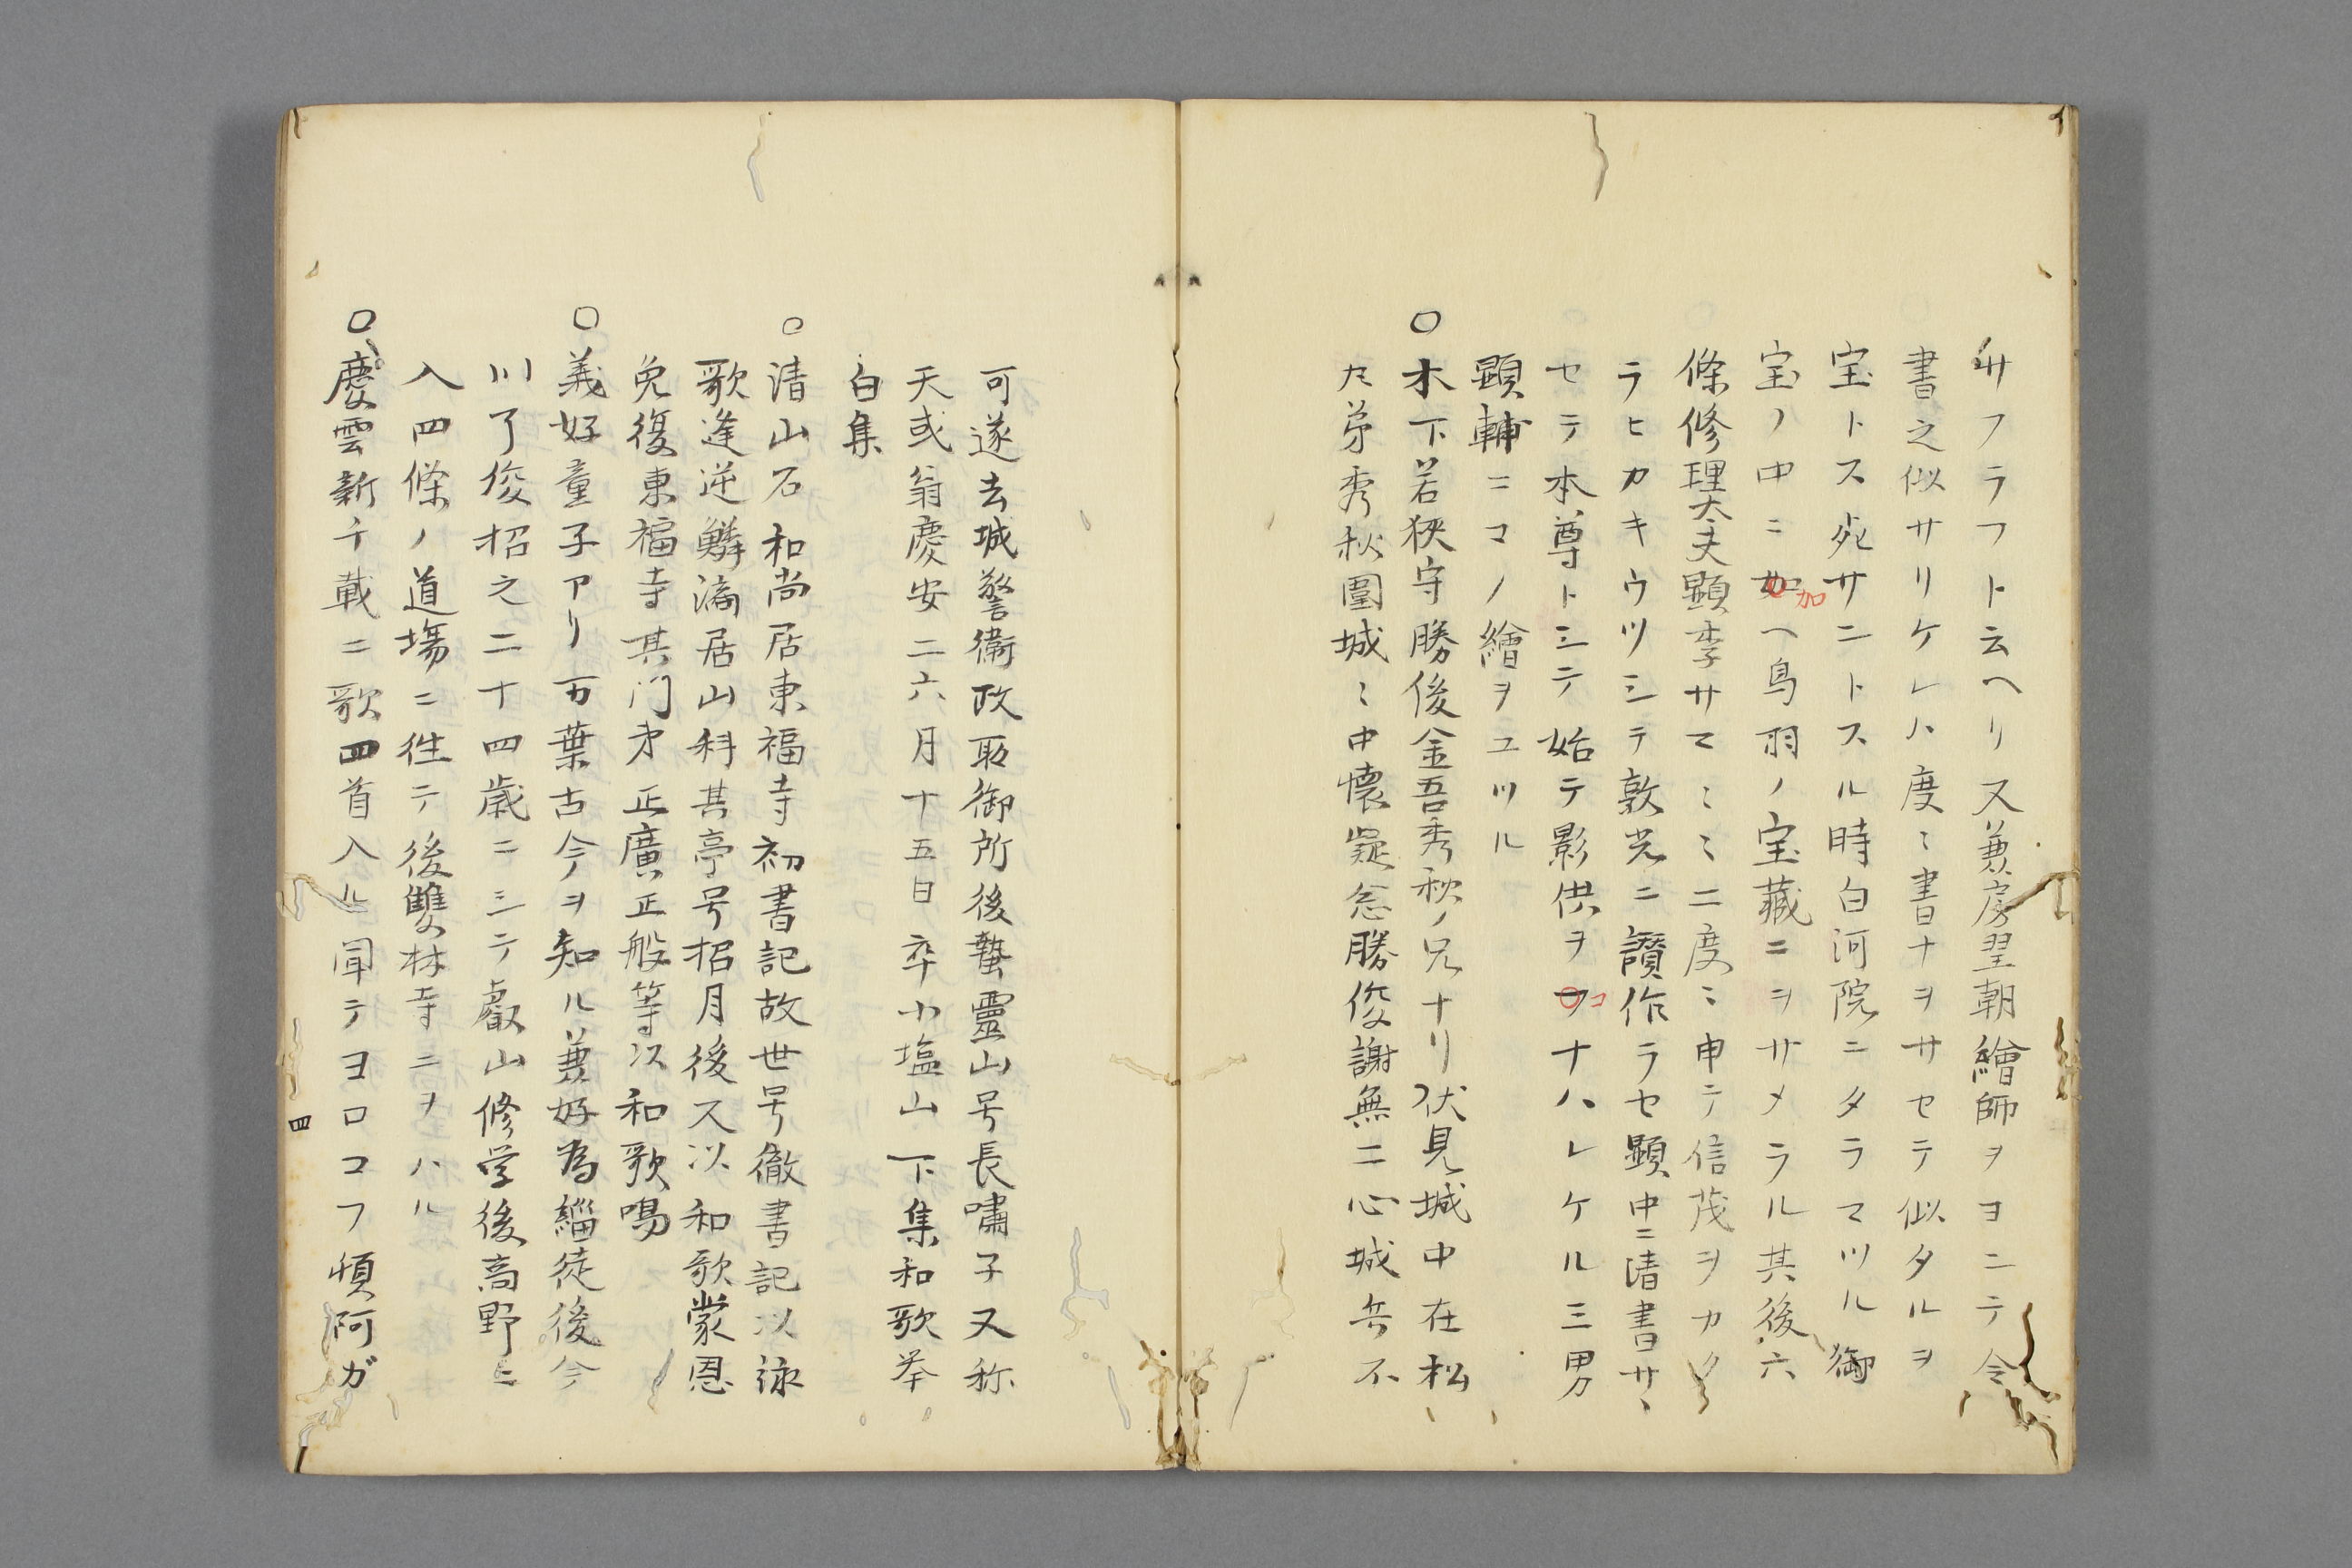 サフラフト云ヘリ又兼房翌朝繪師ヲヨニテ令
書之似サリケレハ度〻書ナヲサセテ似タルヲ
宝トス死サニトスル時白河院ニタラマツル御
宝ノ中ニ如加ヘ鳥羽ノ宝藏ニヲサメラル其後六
條修理大夫顕季サマ〻〻二度〻申テ信茂ヲカタ
ラヒカキウツシテ敦光ニ讃作ラセ顕中ニ清書サヽ
セテ本尊トシテ始テ影供ヲヲコナハレケル三男
顕輔ニコノ繪ヲユツル
○木下若狭守勝俊金吾秀秋ノ兄ナリ伏見城中在松
丸弟秀秋圍城〻中懐疑忿勝俊謝無二心城兵不
可遂去城警衛政所御所後蟄靈山号長嘯子又称
天哉翁慶安二六月十五日卒小塩山下集和歌挙
白集
○清山石和尚居東福寺初書記故世号徹書記以詠
歌逢逆鱗滴居山科其亭号招月後又以和歌蒙恩
免復東福寺其門弟正廣正般等以和歌鳴
○義好童子アリ万葉古今ヲ知ル兼好為緇徒後今
川了俊招之二十四歳ニシテ叡山修学後高野ニ
入四條ノ道場ニ徃テ後雙林寺ニヲハル
○慶雲新千載ニ歌四首入ル聞テヨロコフ頓阿ガ
四